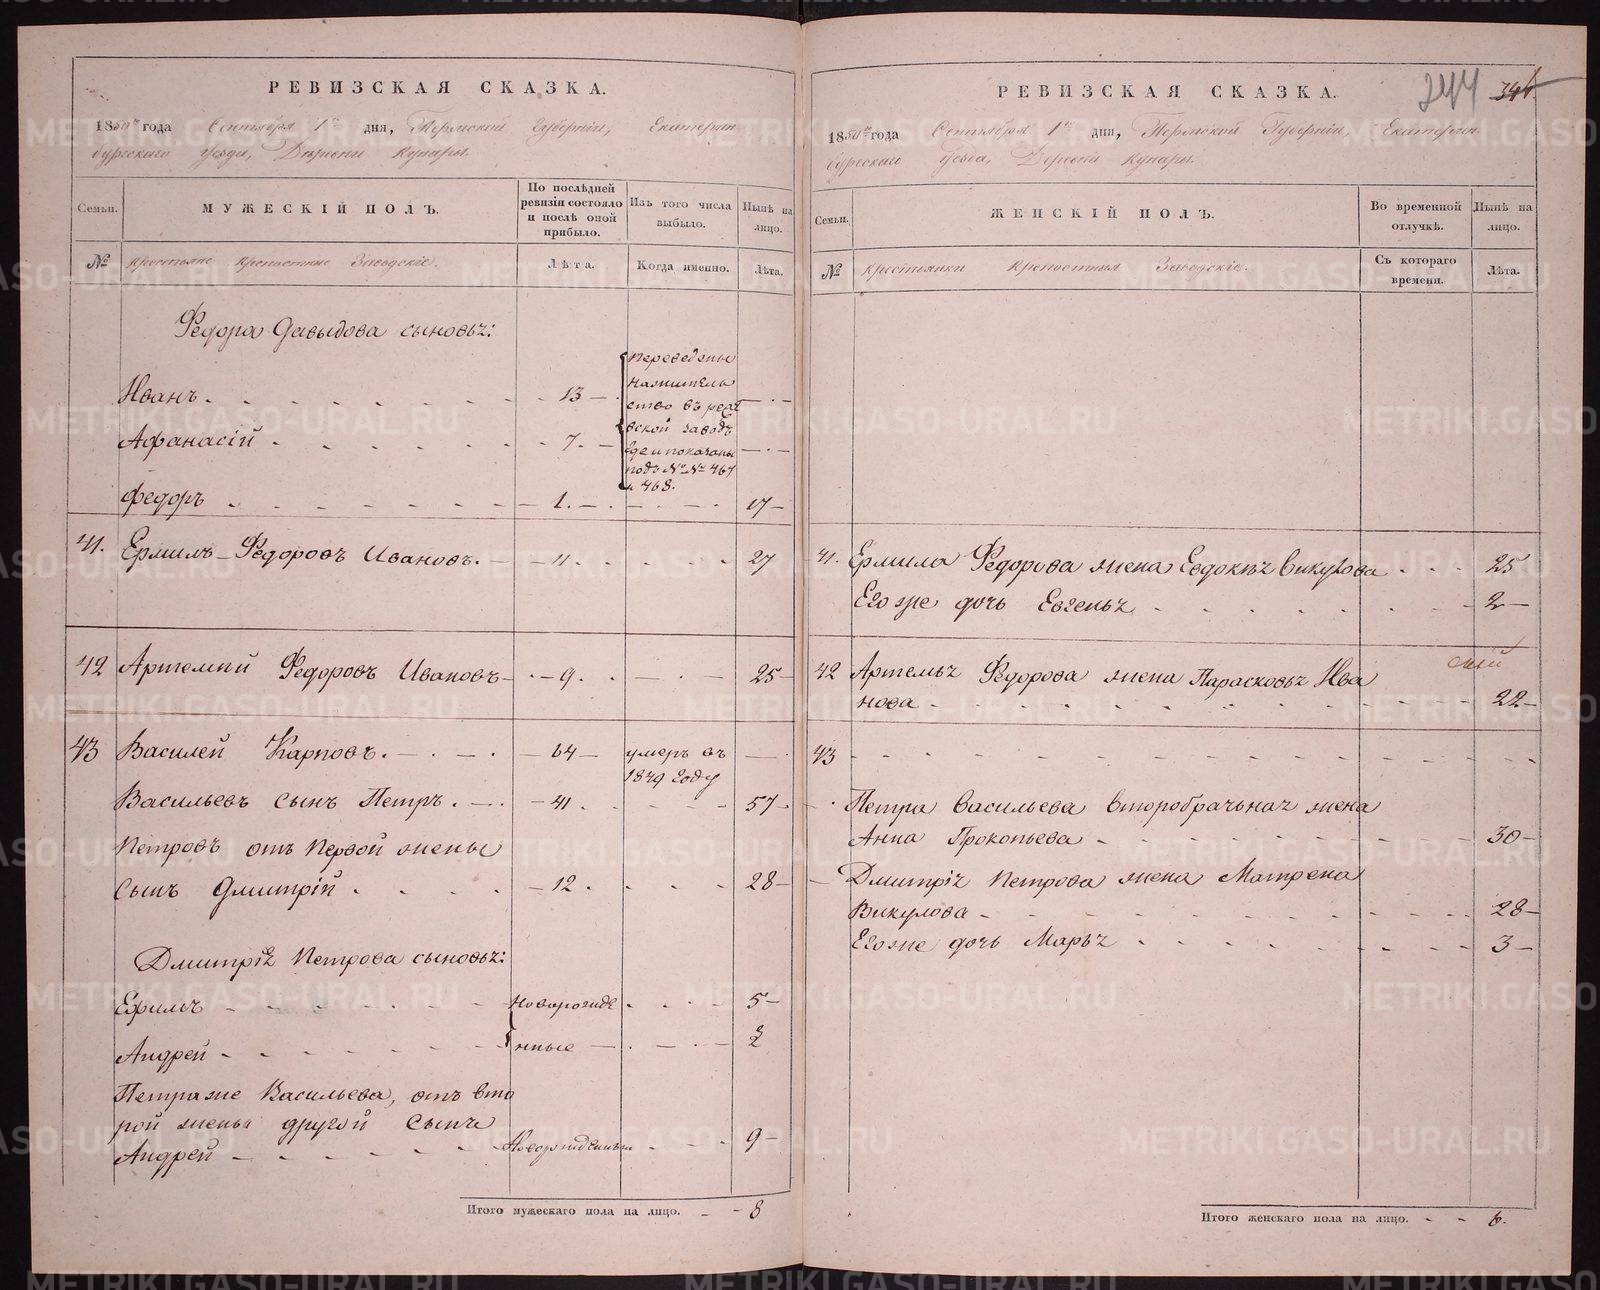 РЕВИЗСКАЯ СКАЗКА.
1850го года Сентября 1го дня, Пермской Губернии, Екатерин
бургскаго уезда, Деревни Кунары.
Семьи. МУЖЕСКІЙ ПОЛЪ. По послѣдней ревизіи состояло и послѣ оной прибыло. Изъ того числа выбыло. Нынѣ на лицо.
№ крестьяне крепостные Заводскіе. Лѣта. Когда именно. Лѣта.
Федора Давыдова сыновья:
Иванъ. 13 Переведены
на жительство въ
Афанасій 7. вской заводъ
где и показаны
подъ №№ 467
и 468.
Федоръ 1. 17
41. Ермилъ Федоровъ Ивановъ. 11. 27
42 Артемий Федоровъ Ивановъ 9. 25
43 Василей Карповъ. 64 умеръ въ
1849 году
Васильевъ сынъ Петръ. 41. 57
Петровъ отъ Первой жены
сынъ Дмитрій 12. 28
Дмитрія Петрова сыновья:
Ефимъ новорожде 5
Андрей нные 2
Петра же Васильева, отъ вто
рой жены другой сынъ
Андрей Новорожденный 9
Итого мужескаго пола на лицо. 8
244 346
РЕВИЗСКАЯ СКАЗКА.
1850го года Сентября 1го дня, Пермской Губерніи, Екатерин
бургскаго уезда, Деревни Кунары.
Семьи. ЖЕНСКІЙ ПОЛЪ. Во временной отлучкѣ. Нынѣ на лицо.
№ крестьянки крепостныя Заводскіе. Съ котораго времени. Лѣта.
41. Ермила Федорова жена Евдокья Викулова 25
Его же дочь Евгенья 2
42 Артемья Федорова жена Парасковья Ива
нова 22
43
Петра Васильева второбрачьная жена
Анна Прокопьева 30
Дмитрія Петрова жена Матрена
Викулова 28
Его же дочь Марья 3
Итого женскаго пола на лицо. 6.
METRIKI.GASO-URAL.RU